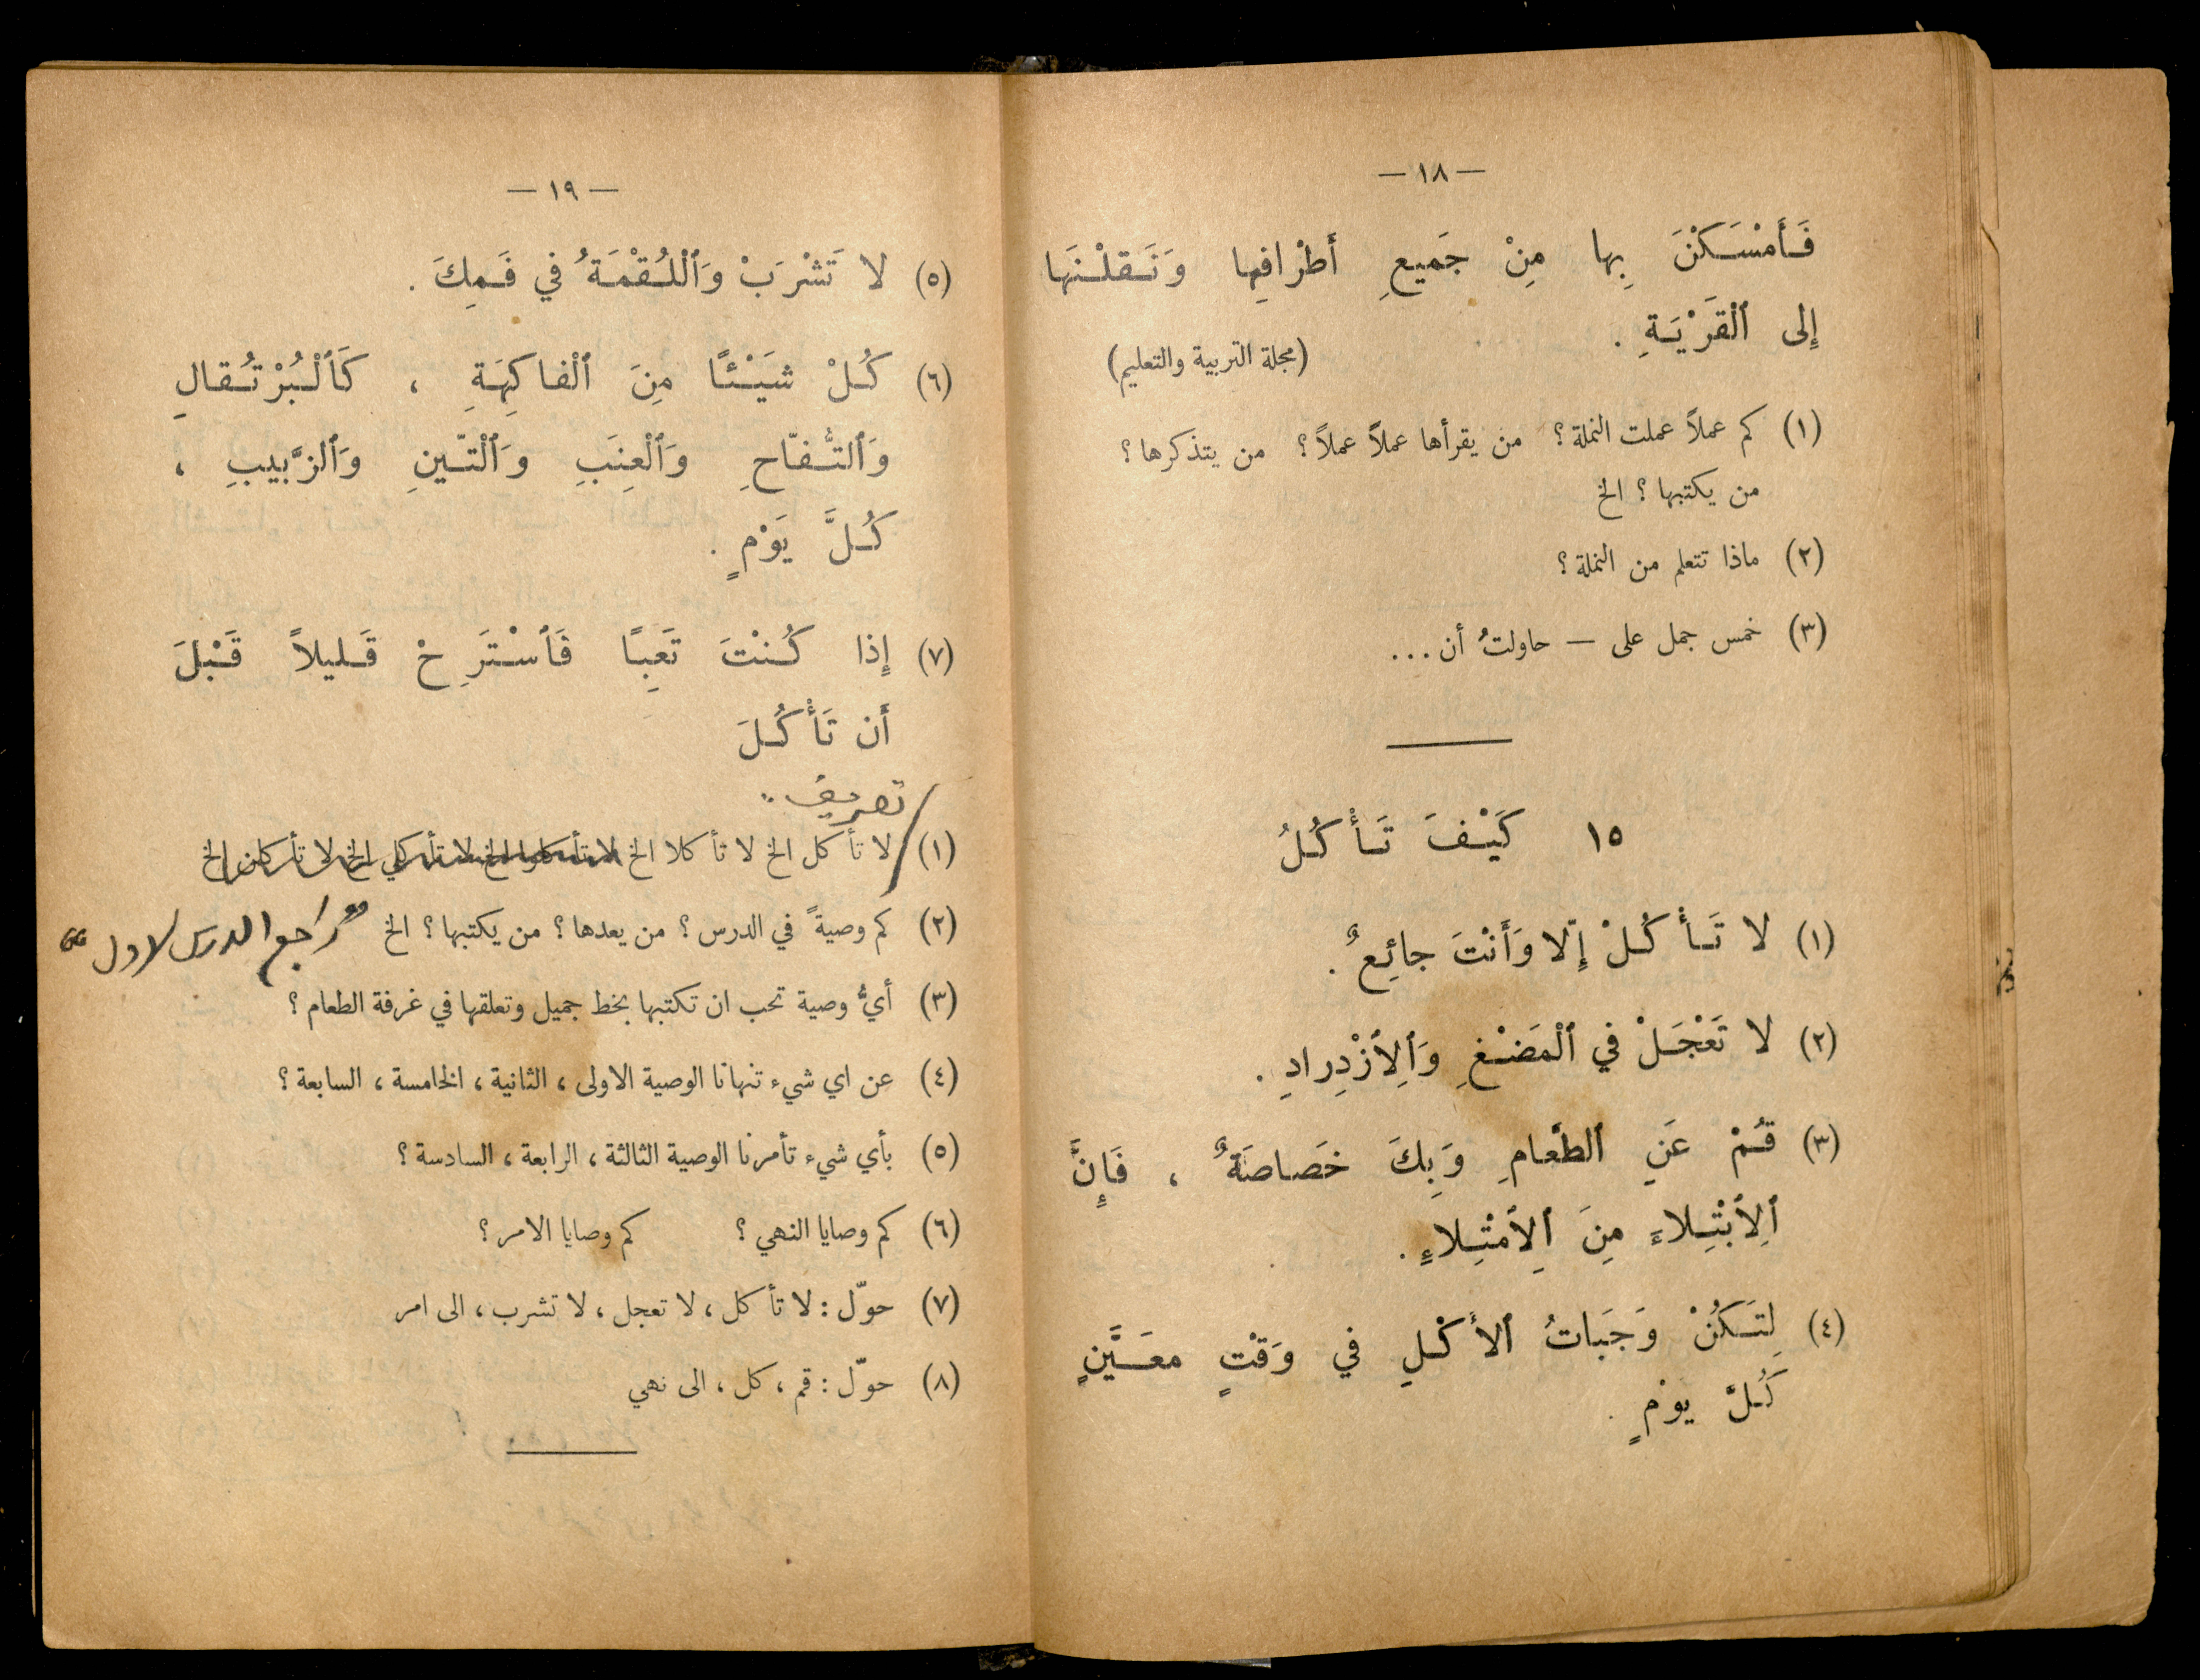 — ١٨ —
فَأَمْسَكْنَ بِها مِنْ جَميعِ أَطْرافِها وَنَقلْنَها
إِلى ٱلْقَرْيَةِ .
(مجلة التربية والتعليم)
(١) كم عملاً عملت النملة ؟ من يقرأها عملاً عملاً ؟ من يتذكرها ؟
من يكتبها ؟ الخ
(٢) ماذا تتعلم من النملة ؟
(٣) خمس جمل على — حاولتُ أن ...
١٥ كَيْفَ تَأْكُلُ
(١) لا تَأْكُلْ إِلّا وَأَنْتَ جائِعٌ .
(٢) لا تَعْجَلْ في ٱلْمَضْغِ وَٱلِٱزْدِرادِ .
(٣) قُمْ عَنِ ٱلطَّعامِ وَبِكَ خَصاصَةٌ ، فَإِنَّ
ٱلِٱبْتِلاءَ مِنَ ٱلِٱمْتِلاءِ .
(٤) لِتَكُنْ وَجَباتُ ٱلأَكْلِ في وَقْتٍ معَيَّنٍ
كُلَّ يوْمٍ .
— ١٩ —
(٥) لا تَشْرَبْ وَٱلْلُقْمَةُ في فَمِكَ .
(٦) كُلْ شَيْئًا مِنَ ٱلْفاكِهَةِ ، كَٱلْبُرْتُقالِ
وَٱلتُّفّاحِ وَٱلْعِنَبِ وَٱلْتّينِ وَٱلزَّبيبِ ،
كُلَّ يَوْمٍ .
(٧) إِذا كُنْتَ تَعِبًا فَٱسْتَرِحْ قَليلاً قَبْلَ
أَن تَأْكُلَ
تصريف :
(١) لا تأكل الخ لا تأكلا الخ لا تأكلوا الخ لا تأكلي الخ لا تأكلن الخ
(٢) كم وصيةً في الدرس ؟ من يعدها ؟ من يكتبها ؟ الخ " راجع الدرس الاول "
(٣) أيُّ وصية تحب ان تكتبها بخط جميل وتعلقها في غرفة الطعام ؟
(٤) عن اي شيء تنهانا الوصية الاولى ، الثانية ، الخامسة ، السابعة ؟
(٥) بأي شيء تأمرنا الوصية الثالثة ، الرابعة ، السادسة ؟
(٦) كم وصايا النهي ؟ كم وصايا الامر ؟
(٧) حوّل : لا تأكل ، لا تعجل ، لا تشرب ، الى امر
(٨) حوّل : قم ، كل ، الى نهي